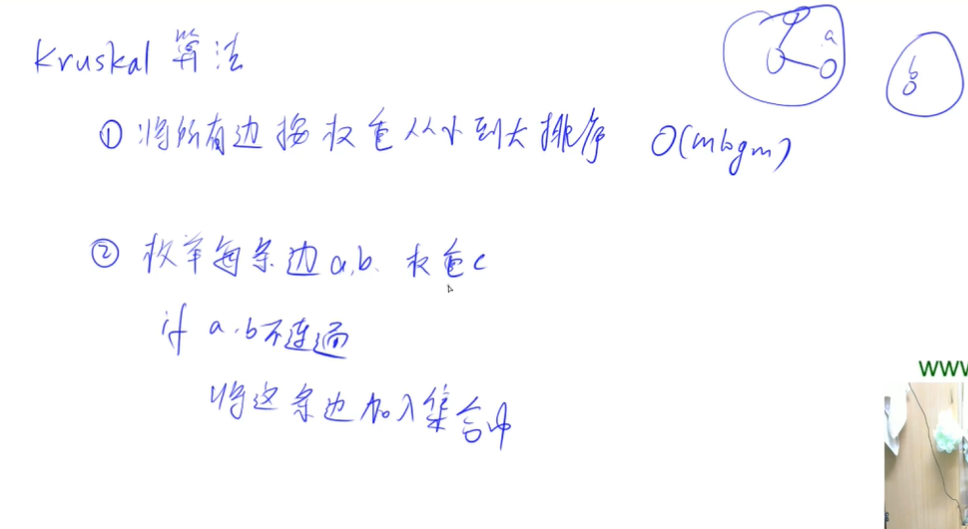 Kruskal 算法
a
b
① 将所有边按权重从小到大排序 O(mlogm)
② 枚举每条边a,b 权重c
if a,b不连通
将这条边加入集合中
www